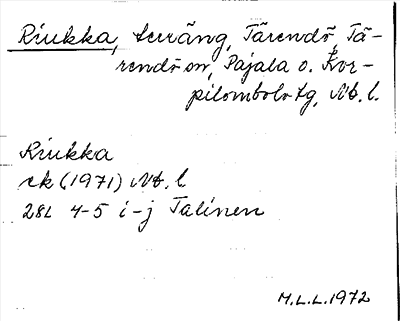 Riukka, terräng, Tärendö, Tä-
rendö sn, Pajala o. Kor-
pilombolo tg, Nb. l.
Riukka
ek (1971) Nb. l
28L 4-5 i-j Talinen
M.L.L. 1972